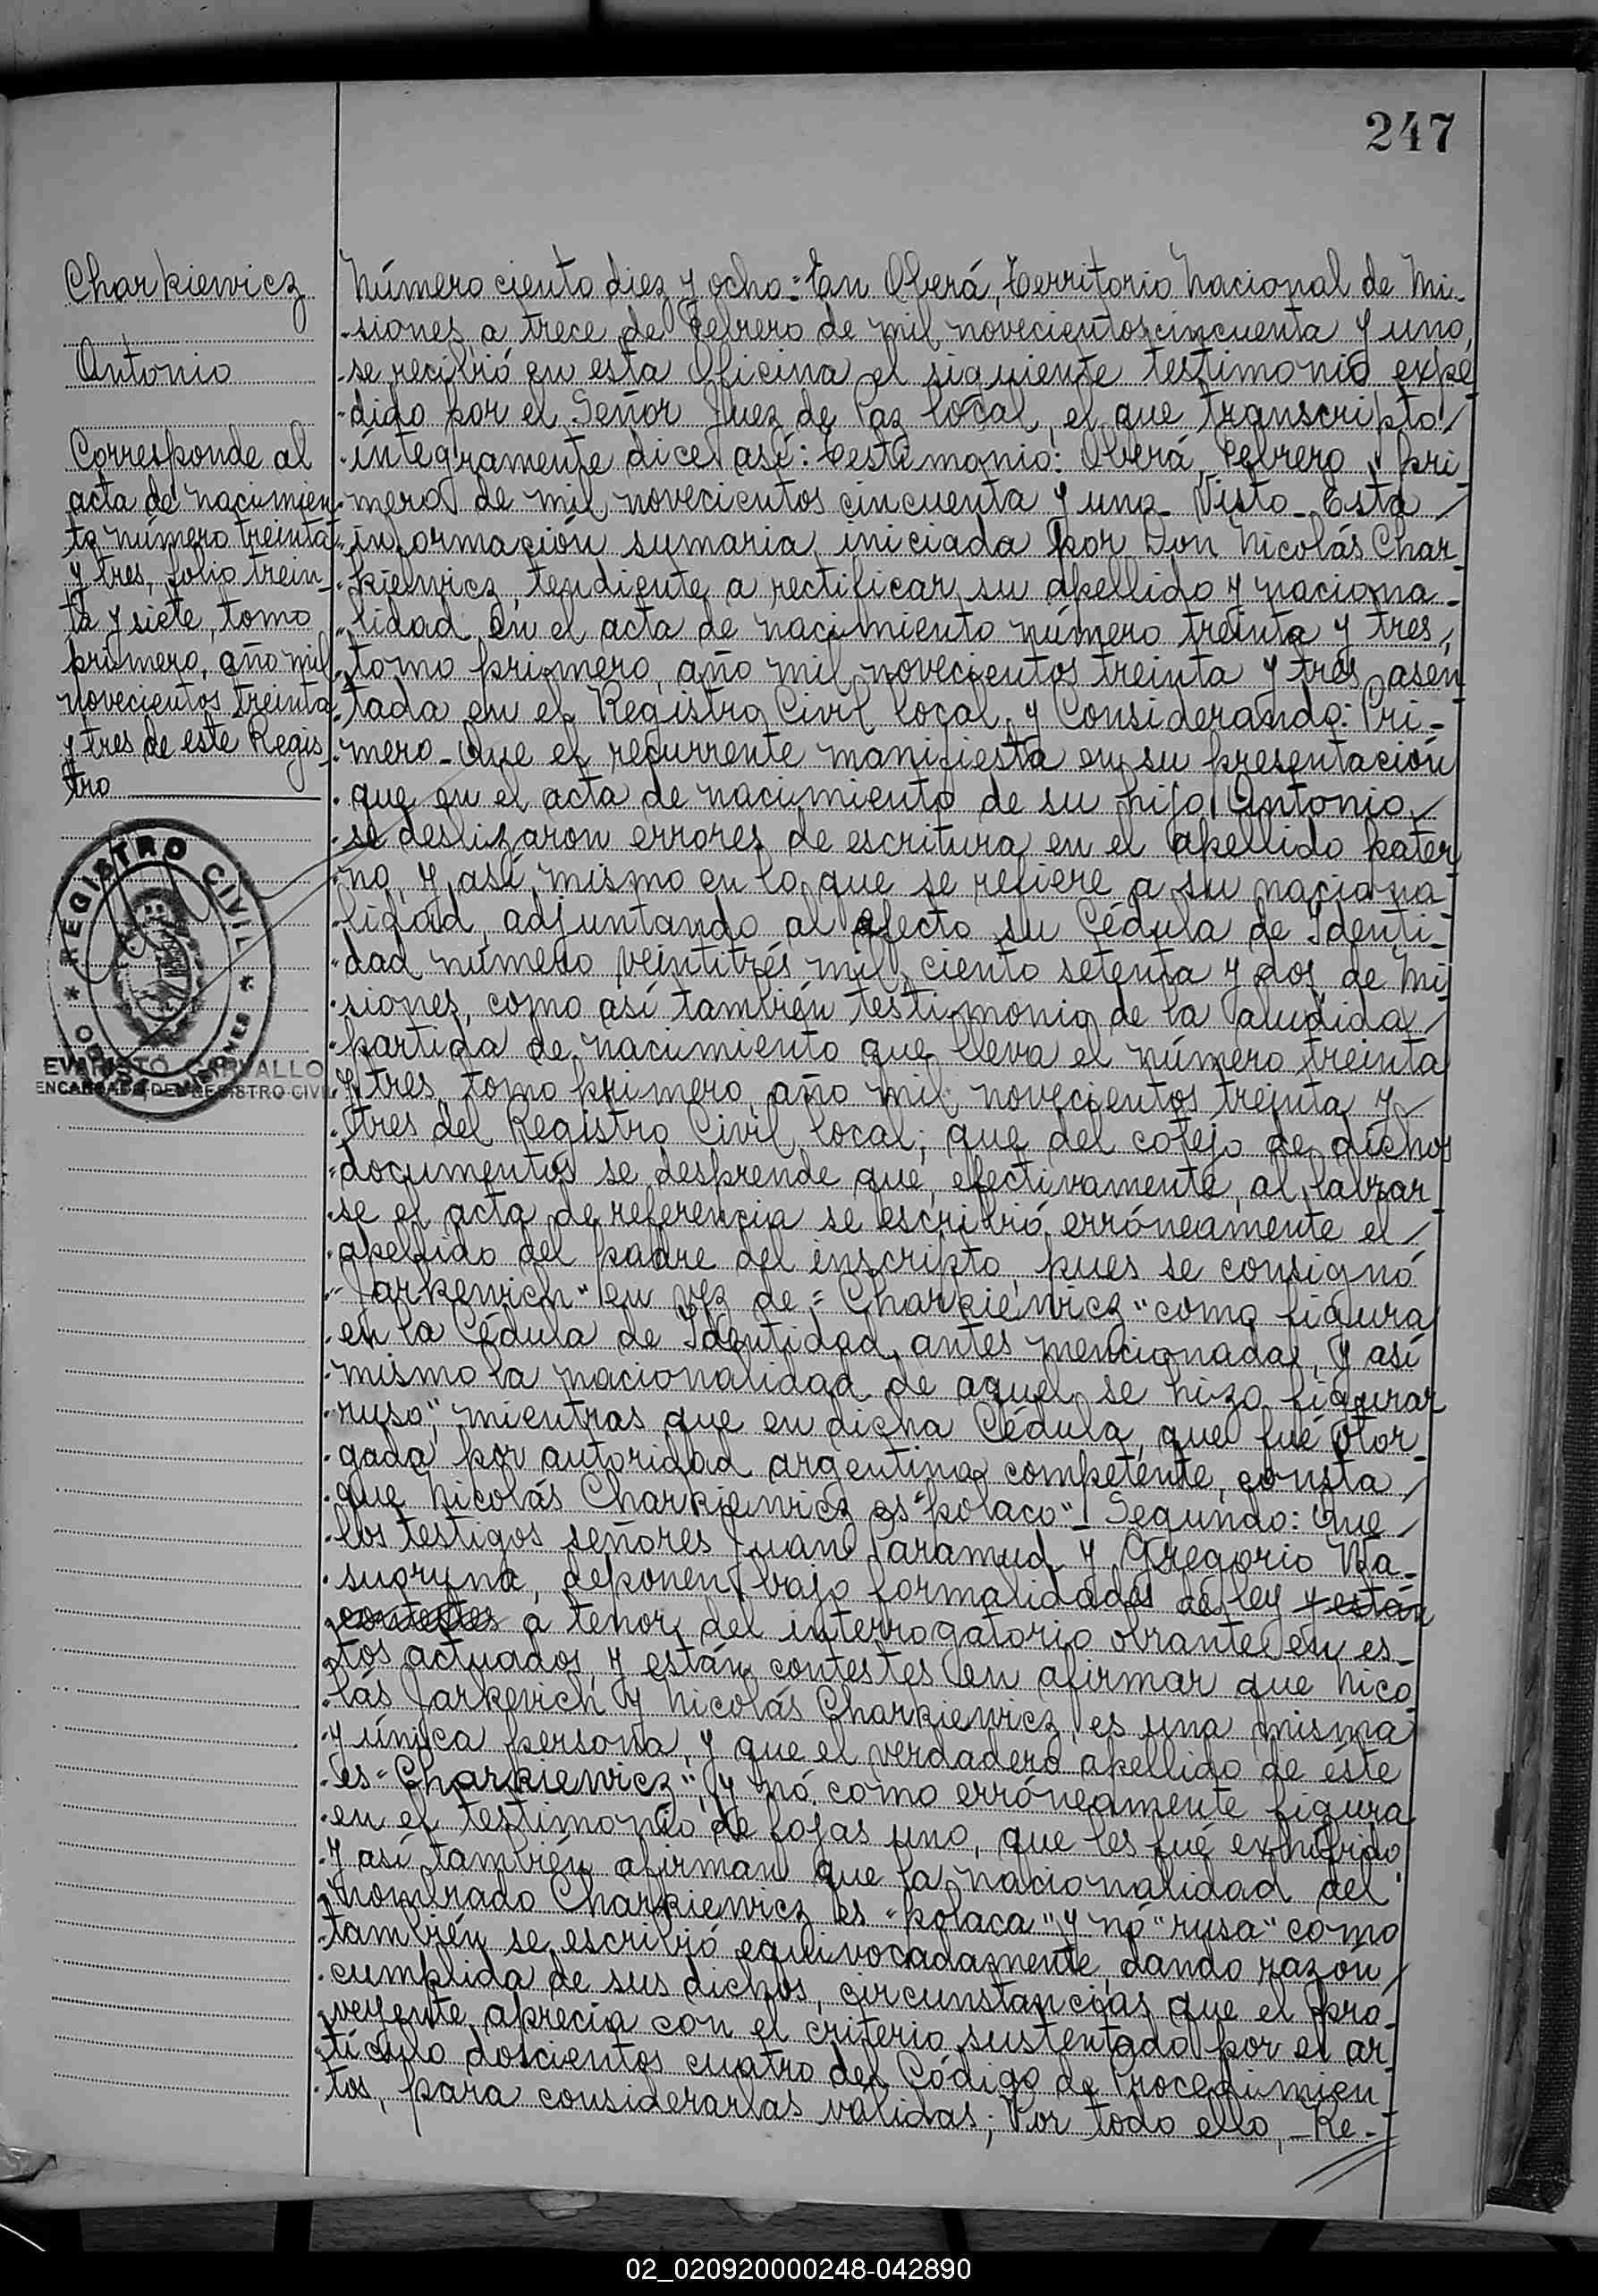 247
Charkiewicz
Antonio
Corresponde al
acta de nacimien
to número treinta
y tres, folio trein-
ta y siete, tomo
primero, año mil
novecientos treinta
y tres de este Regis
tro
REGISTRO CIVIL
EVARISTO CARVALLO
ENCARGADO DEL REGISTRO CIVIL
Número ciento diez y ocho = En Oberá, Territorio Nacional de Mi-
siones, a trece de Febrero de mil novecientos cincuenta y uno,
se recibió en esta Oficina el siguiente testimonio expe
dido por el Señor Juez de Paz local, el que transcripto
íntegramente dice así: Testimonio: Oberá, Febrero pri
mero de mil novecientos cincuenta y uno - Visto - Esta
información sumaria, iniciada por Don Nicolás Char
kiewicz, tendiente a rectificar su apellido y naciona-
lidad en el acta de nacimiento número treinta y tres,
tomo primero, año mil novecientos treinta y tres, asen
tada en el Registro Civil local, y Considerando: Pri-
mero - Que el recurrente manifiesta en su presentación
que en el acta de nacimiento de su hijo Antonio,
se deslizaron errores de escritura en el apellido pater
no, y así mismo en lo que se refiere a su naciona
lidad, adjuntando al efecto su Cédula de Identi-
dad número veintitrés mil ciento setenta y dos, de Mi
siones, como así también testimonio de la aludida
partida de nacimiento que lleva el número treinta
y tres, tomo primero, año mil novecientos treinta y
tres del Registro Civil local; que del cotejo de dichos
documentos se desprende que, efectivamente, al labrar
se el acta de referencia se escribió erróneamente el
apellido del padre del inscripto, pues se consignó
"Jarkevich" en vez de "Charkiewicz" como figura
en la Cédula de Identidad, antes mencionada, y así
mismo la nacionalidad de aquel se hizo figurar
"ruso", mientras que en dicha Cédula, que fué otor
gada por autoridad argentina competente, consta
que Nicolás Charkiewicz es "polaco" - Segundo: Que
los testigos señores Juan Paramud y Gregorio Wa-
suoryna, deponen bajo formalidades de ley y están
contestes a tenor del interrogatorio obrante en es-
tos actuados, y están contestes en afirmar que Nico
lás Jarkevich y Nicolás Charkiewicz, es una misma
y única persona, y que el verdadero apellido de éste
es "Charkiewicz", y nó como erróneamente figura
en el testimonio de fojas uno, que les fué exhibido
y así también afirman que la nacionalidad del
nombrado Charkiewicz es "polaca" y nó "rusa" como
también se escribió equivocadamente, dando razón
cumplida de sus dichos, circunstancias que el pro-
veyente aprecia con el criterio sustentado por el ar
tículo doscientos cuatro del Código de Procedimien
tos, para considerarlas válidas; Por todo ello, - Re-
02_020920000248-042890